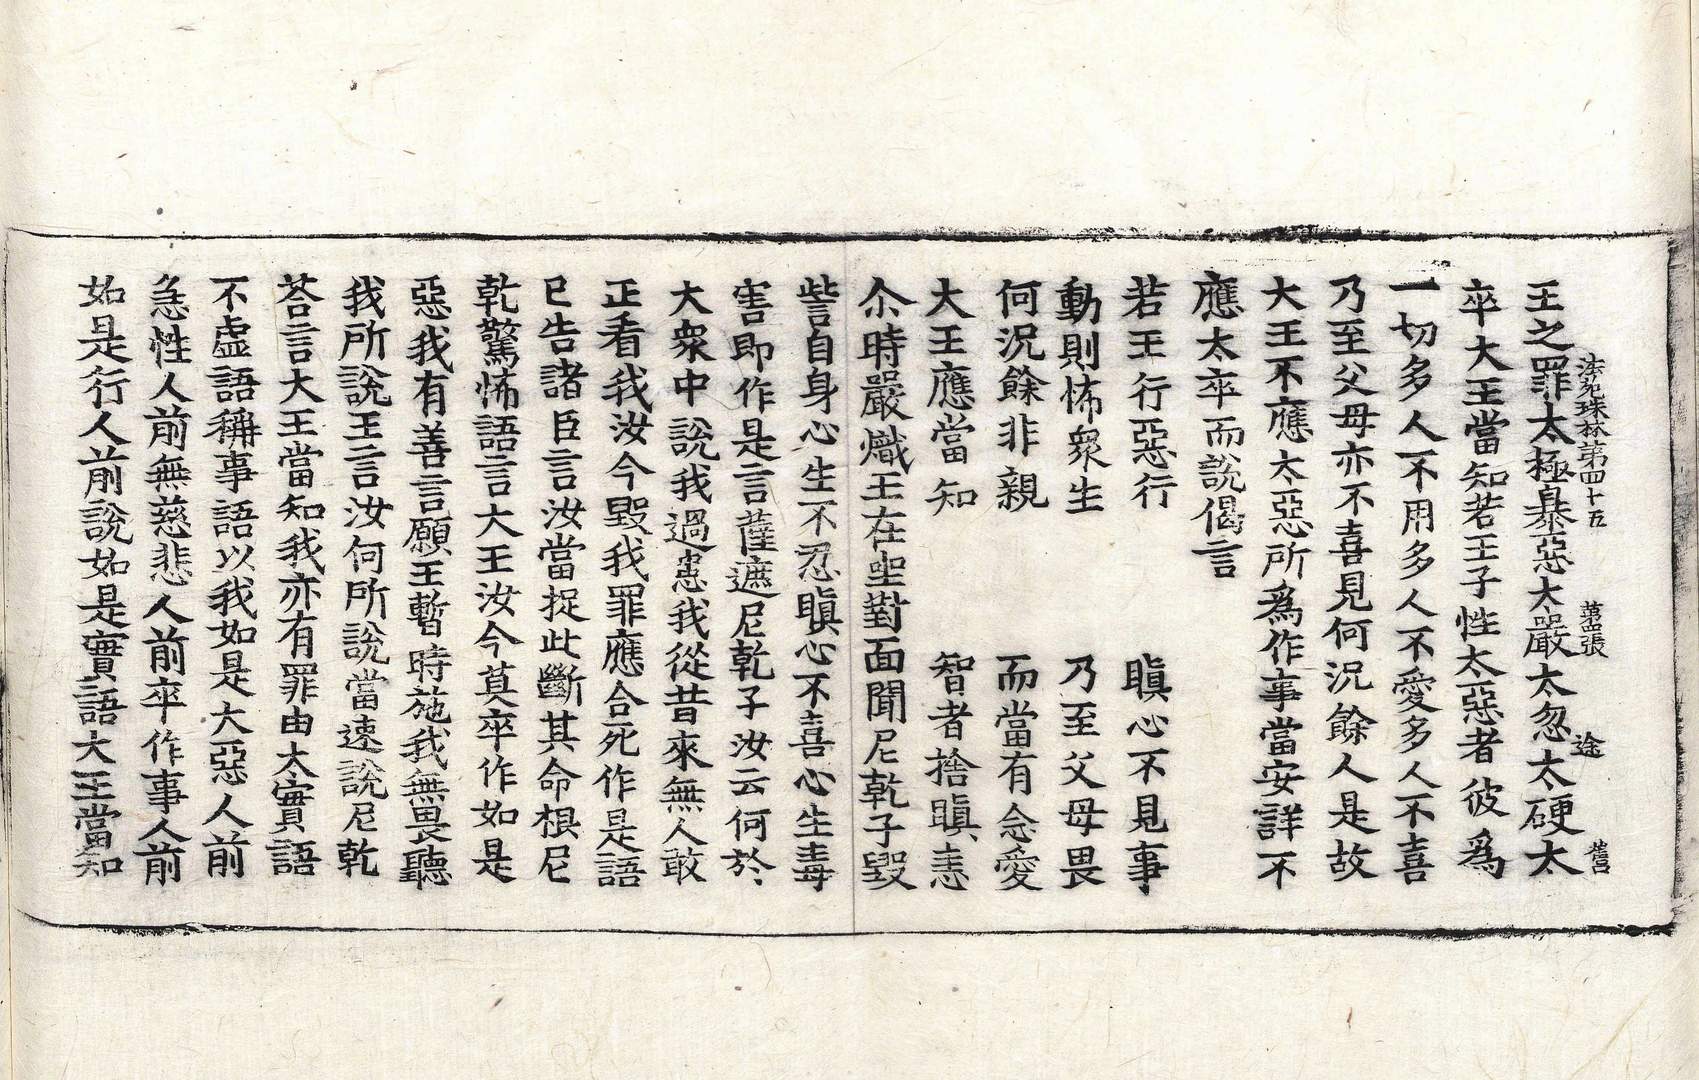 法苑珠林第四十五 張 途
王之罪太極暴惡大嚴太忽太硬太
卒大王當知若王子性太惡者彼爲
一切多人不用多人不愛多人不喜
乃至父母亦不喜見何況餘人是故
大王不應太惡所爲作事當安詳不
應太卒而說偈言
若王行惡行 瞋心不見事
動則怖衆生 乃至父母畏
何況餘非親 而當有念愛
大王應當知 智者捨瞋恚
尒時嚴熾王在坐對面聞尼乾子毀
呰自身心生不忍瞋心不喜心生毒
害即作是言薩遮尼乾子汝云何於
大衆中說我過恚我從昔來無人敢
正看我汝今毀我罪應合死作是語
已告諸臣言汝當捉此斷其命根尼
乾驚怖語言大王汝今莫卒作如是
惡我有善言願王暫時施我無畏聽
我所說王言汝何所說當速說尼乾
荅言大王當知我亦有罪由大實語
不虛語稱事語以我如是大惡人前
急性人前無慈悲人前卒作事人前
如是行人前說如是實語大王當知